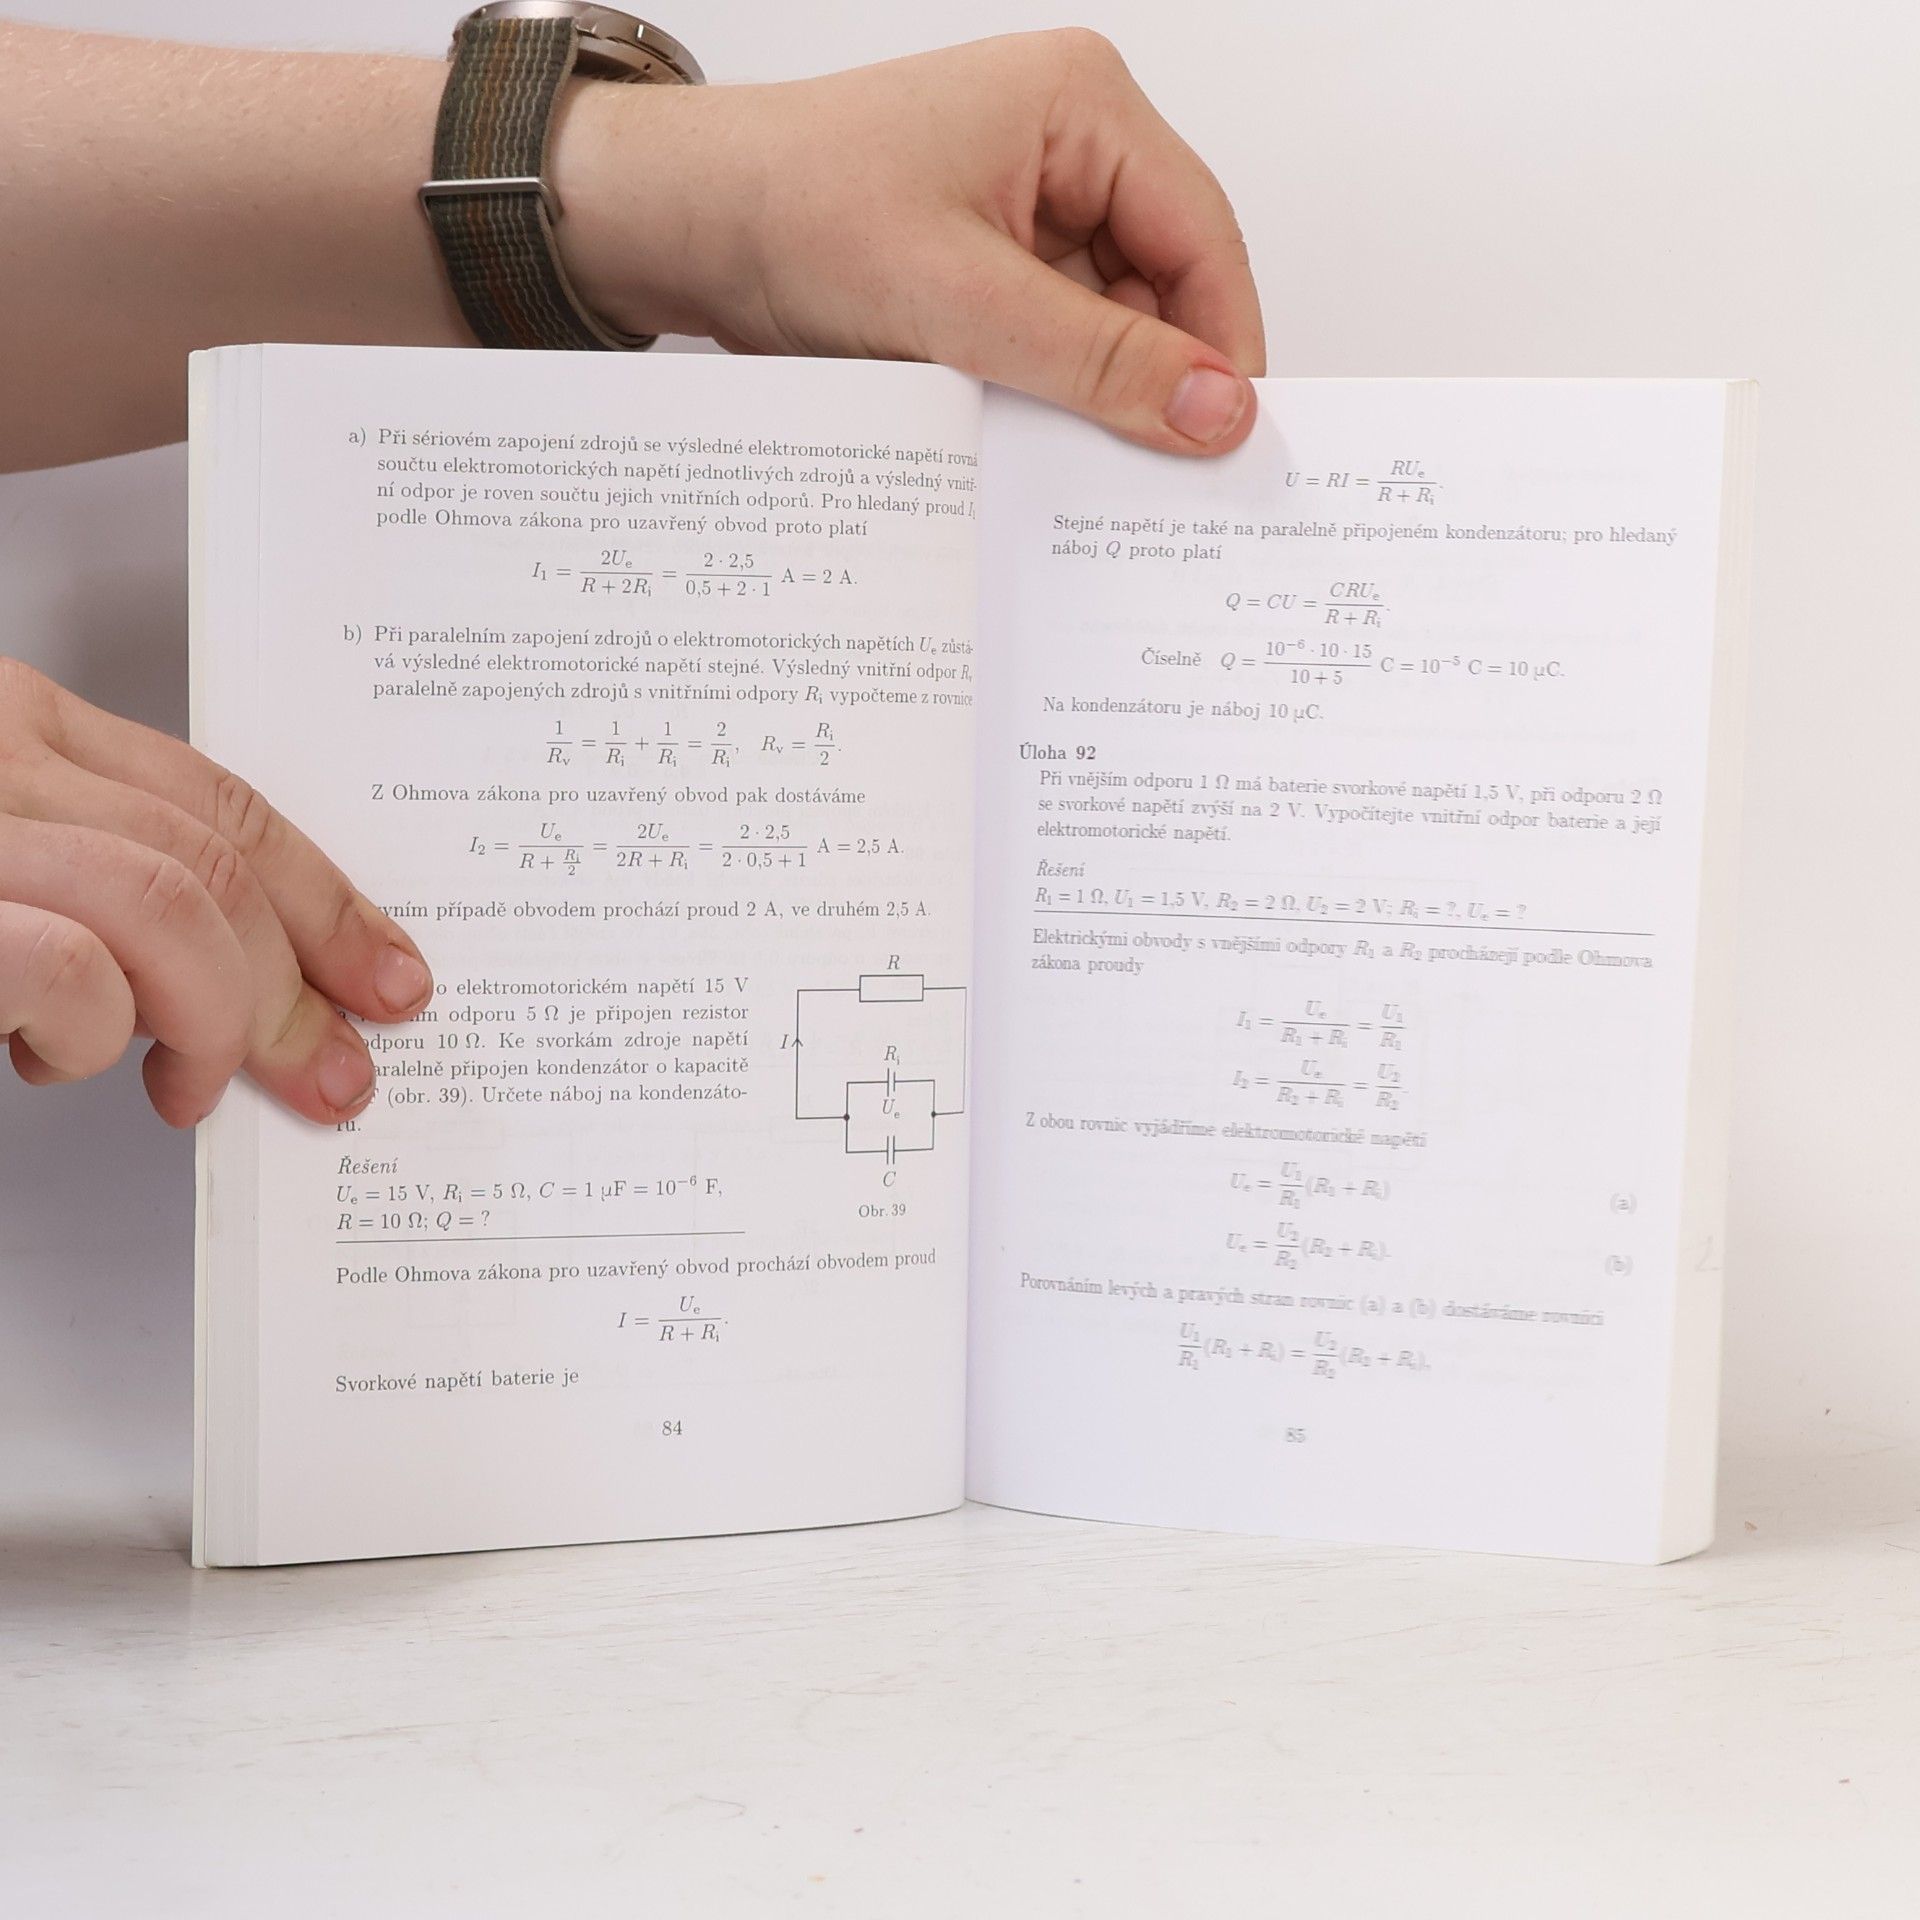 a) Při sériovém zapojení zdrojů se výsledné elektromotorické napětí rovná
součtu elektromotorických napětí jednotlivých zdrojů a výsledný vnitř-
ní odpor je roven součtu jejich vnitřních odporů. Pro hledaný proud I₁
podle Ohmova zákona pro uzavřený obvod proto platí
I₁ = 2Uₑ / (R + 2Rᵢ) = 2 · 2,5 / (0,5 + 2 · 1) A = 2 A.
b) Při paralelním zapojení zdrojů o elektromotorických napětích Uₑ zůstá-
vá výsledné elektromotorické napětí stejné. Výsledný vnitřní odpor Rᵥ
paralelně zapojených zdrojů s vnitřními odpory Rᵢ vypočteme z rovnice
1/Rᵥ = 1/Rᵢ + 1/Rᵢ = 2/Rᵢ, Rᵥ = Rᵢ/2.
Z Ohmova zákona pro uzavřený obvod pak dostáváme
I₂ = Uₑ / (R + Rᵢ/2) = 2Uₑ / (2R + Rᵢ) = 2 · 2,5 / (2 · 0,5 + 1) A = 2,5 A.
případě obvodem prochází proud 2 A, ve druhém 2,5 A.
o elektromotorickém napětí 15 V
odporu 5 Ω je připojen rezistor
odporu 10 Ω. Ke svorkám zdroje napětí
paralelně připojen kondenzátor o kapacitě
(obr. 39). Určete náboj na kondenzáto-
ru.
R
I
Rᵢ
Uₑ
C
Obr. 39
Řešení
Uₑ = 15 V, Rᵢ = 5 Ω, C = 1 μF = 10⁻⁶ F,
R = 10 Ω; Q = ?
Podle Ohmova zákona pro uzavřený obvod prochází obvodem proud
I = Uₑ / (R + Rᵢ).
Svorkové napětí baterie je
84
U = RI = RUₑ / (R + Rᵢ).
Stejné napětí je také na paralelně připojeném kondenzátoru; pro hledaný
náboj Q proto platí
Q = CU = CRUₑ / (R + Rᵢ).
Číselně Q = 10⁻⁶ · 10 · 15 / (10 + 5) C = 10⁻⁵ C = 10 μC.
Na kondenzátoru je náboj 10 μC.
Úloha 92
Při vnějším odporu 1 Ω má baterie svorkové napětí 1,5 V, při odporu 2 Ω
se svorkové napětí zvýší na 2 V. Vypočítejte vnitřní odpor baterie a její
elektromotorické napětí.
Řešení
R₁ = 1 Ω, U₁ = 1,5 V, R₂ = 2 Ω, U₂ = 2 V; Rᵢ = ?, Uₑ = ?
Elektrickými obvody s vnějšími odpory R₁ a R₂ procházejí podle Ohmova
zákona proudy
I₁ = Uₑ / (R₁ + Rᵢ) = U₁/R₁
I₂ = Uₑ / (R₂ + Rᵢ) = U₂/R₂.
Z obou rovnic vyjádříme elektromotorické napětí
Uₑ = U₁/R₁ (R₁ + Rᵢ) (a)
Uₑ = U₂/R₂ (R₂ + Rᵢ). (b)
Porovnáním levých a pravých stran rovnic (a) a (b) dostáváme rovnici
U₁/R₁ (R₁ + Rᵢ) = U₂/R₂ (R₂ + Rᵢ),
85